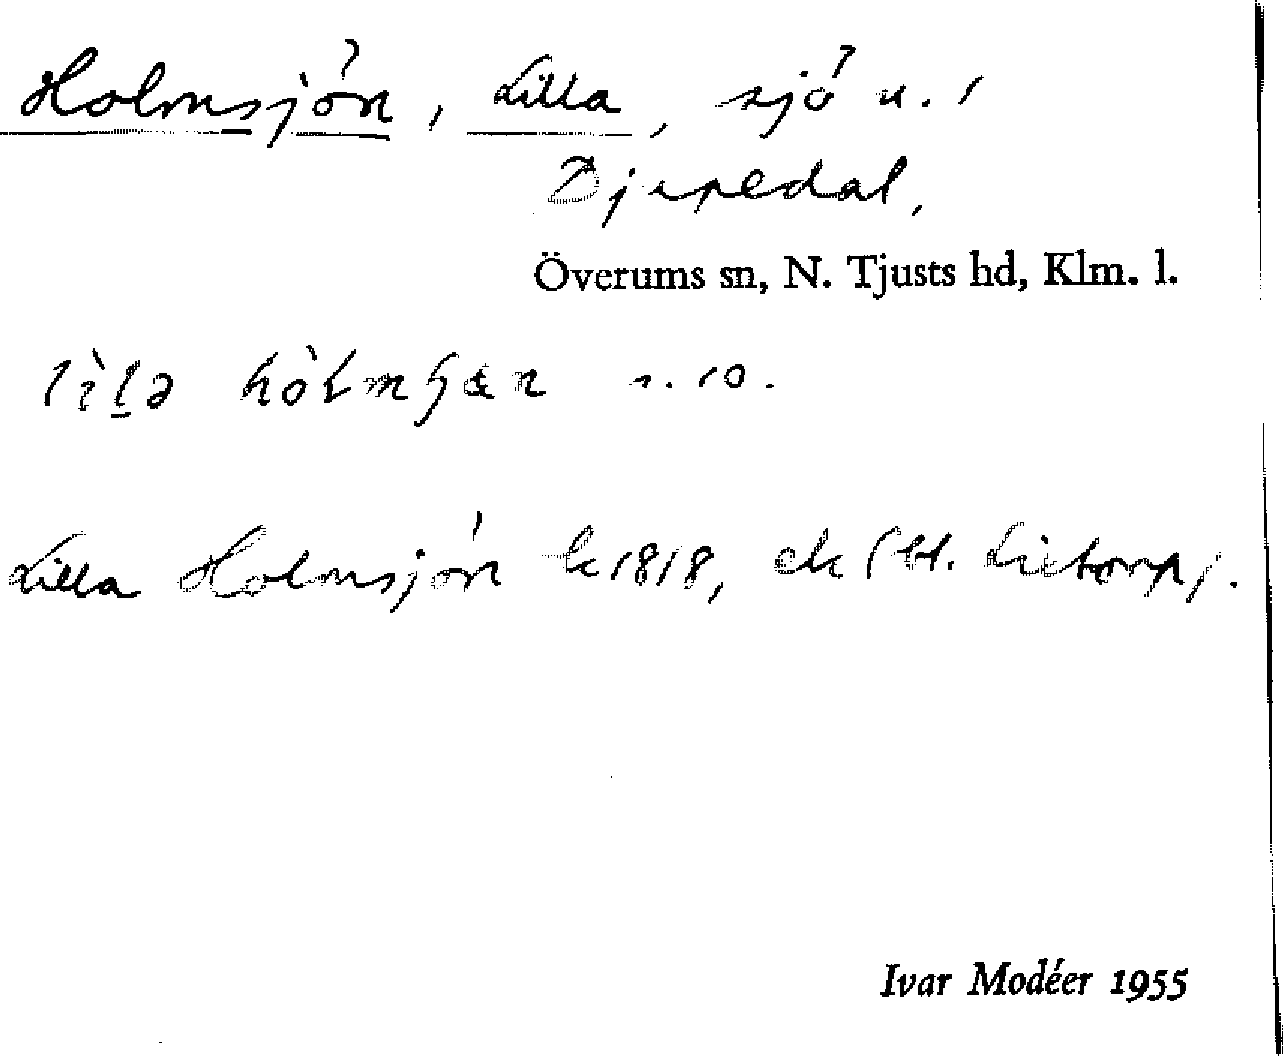 Holmsjön, Lilla, sjö u. 1
Djupedal,
Överums sn, N. Tjusts hd, Klm. l.
Lilla Holmsjön k 1818, ek (bt. Lietorp).
Ivar Modéer 1955